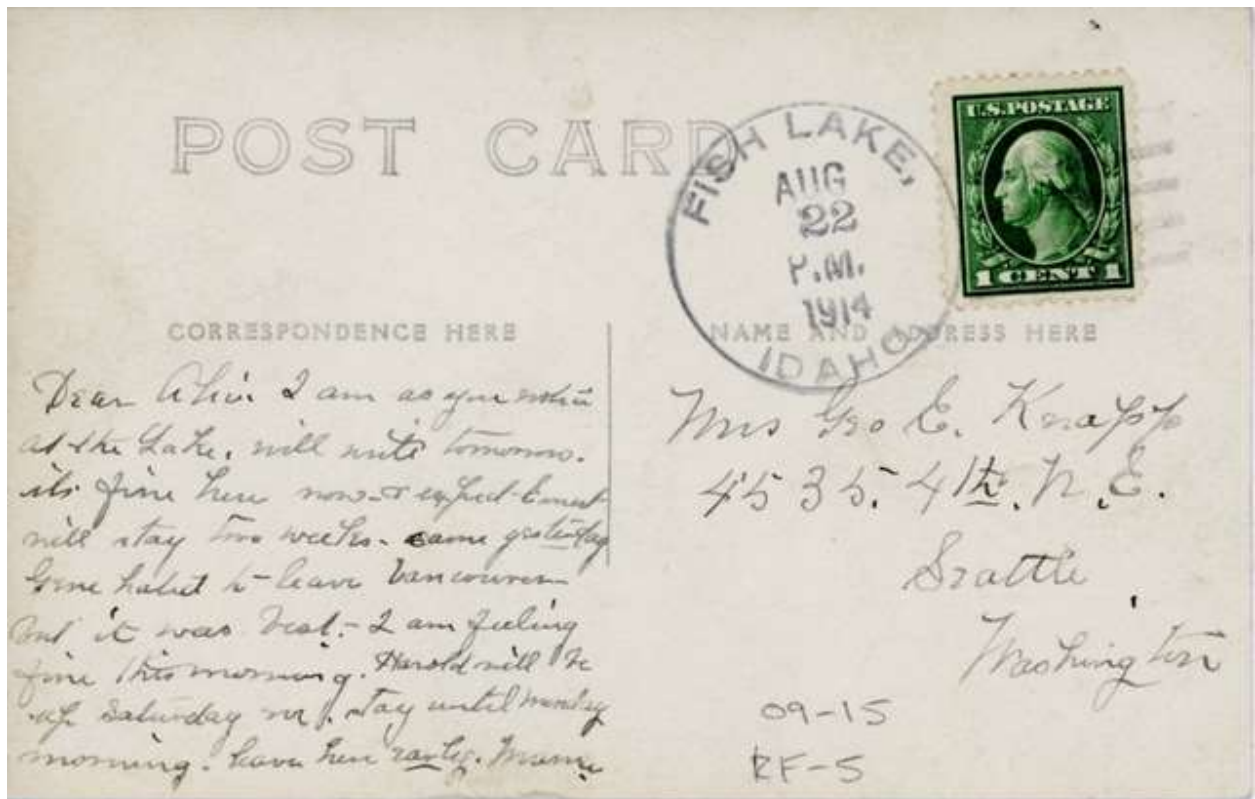 POST CARD
FISH LAKE,
AUG
22
P.M.
1914
IDAHO
U.S. POSTAGE
1 CENT 1
CORRESPONDENCE HERE
NAME AND ADDRESS HERE
Dear I am as you
at the Lake. will write tomorrow.
its fine here now & expect
will stay two weeks. came yesterday
to leave Vancouver
but it was best. I am feeling
fine this morning. Harold will be
up Saturday stay until Monday
morning. leave here
Mrs Geo E. Knapp
4535. 4th. N.E.
Seattle
Washington
09-15
RF-5